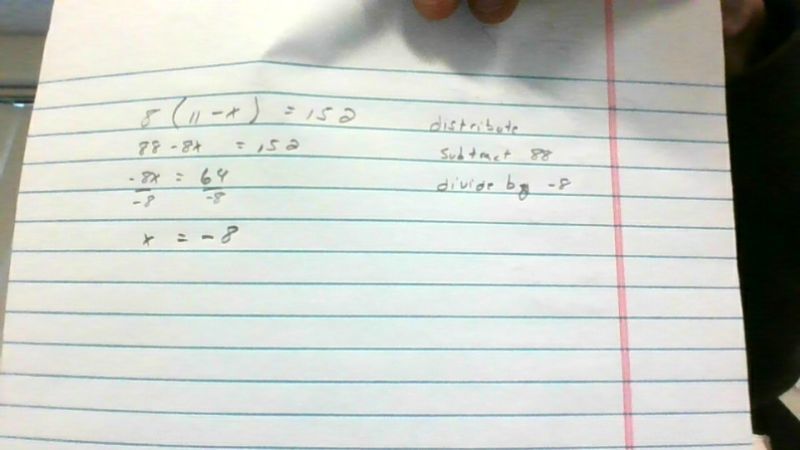 8 (11 - x) = 152
distribute
88 - 8x = 152
subtract 88
-8x = 64
divide by -8
-8 -8
x = -8